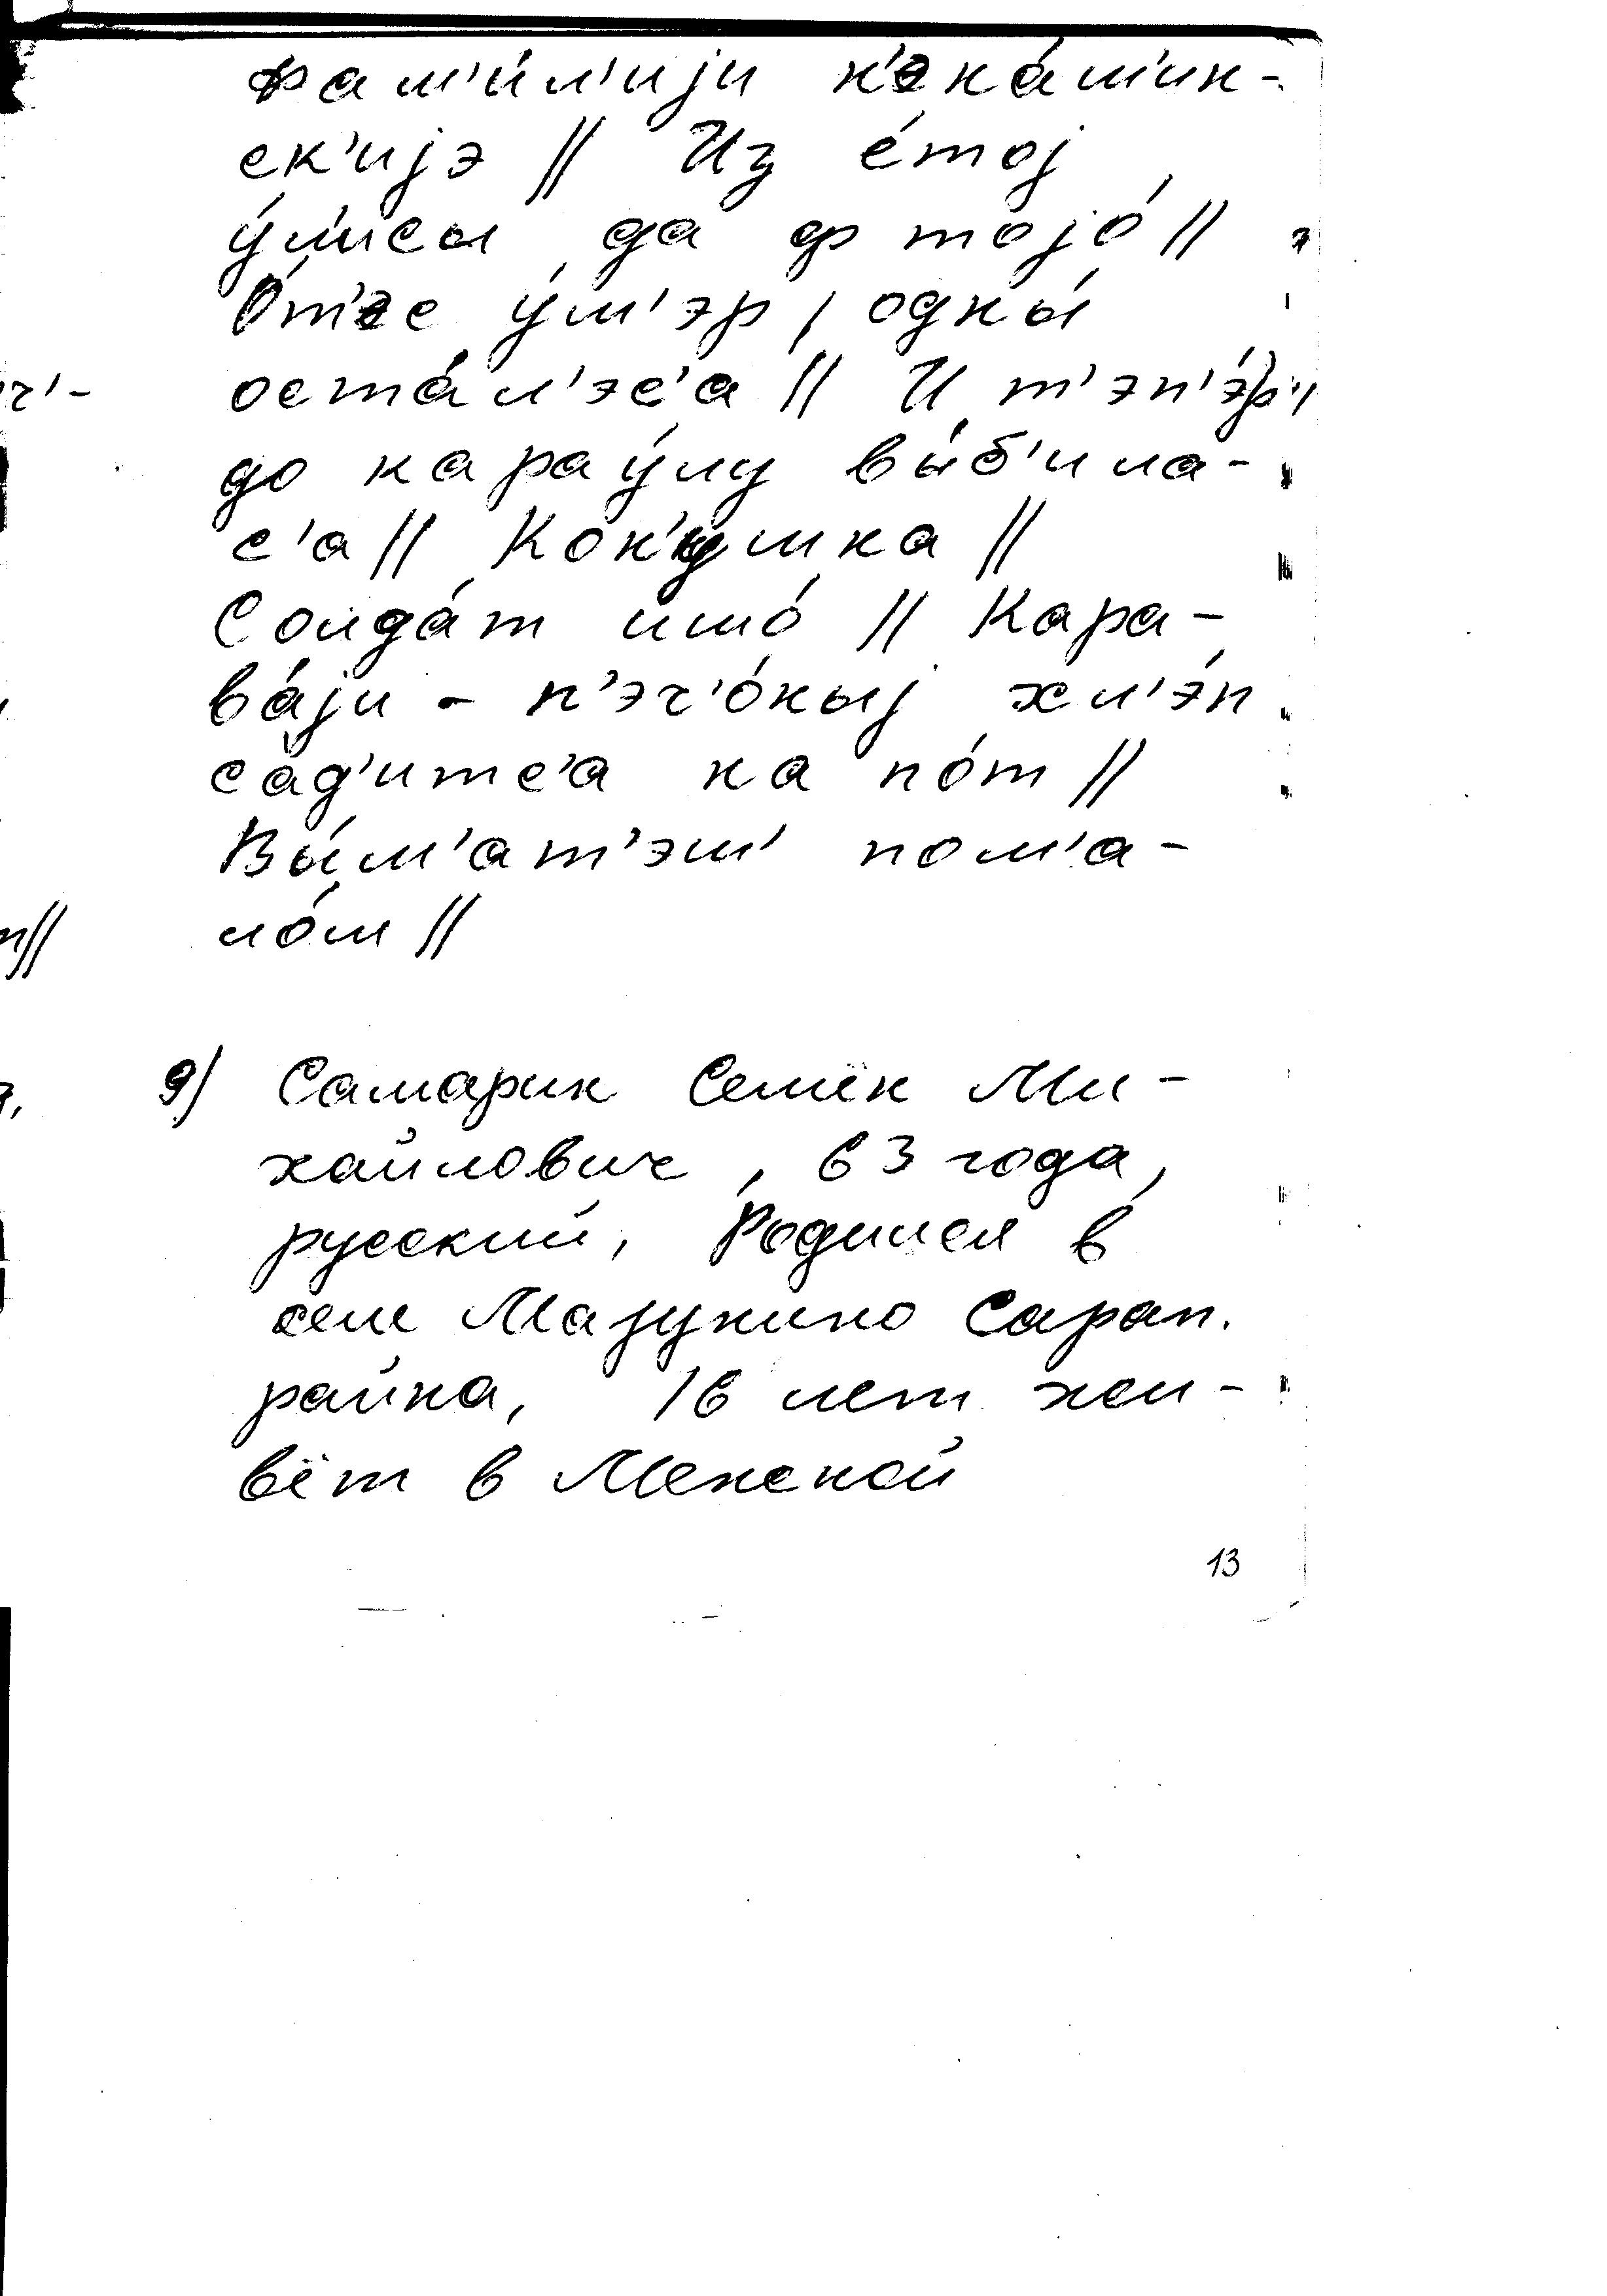 фам'и́л'иjи н'эка́м'ин-
ск'иjэ || Из е́тоj
у́л'исы да ф тоjо́ ||
О́т'эс у́м'эр, одны́
оста́л'эс'а || И т'эп'э́р'
до карау́лу вы́б'ила-
с'а || Кон'ушка ||
Солда́т ишо́ || Кара-
ва́jи - п'эч'о́ныj хл'э́п
са́д'итс'а на по́т ||
Вы́м'ат'эш' пом'а-
ло́м ||
9) Самарин Семён Ми-
хайлович, 63 года,
русский, Родился в
селе Мазунино Сарап.
района, 16 лет жи-
вёт в Менской
13